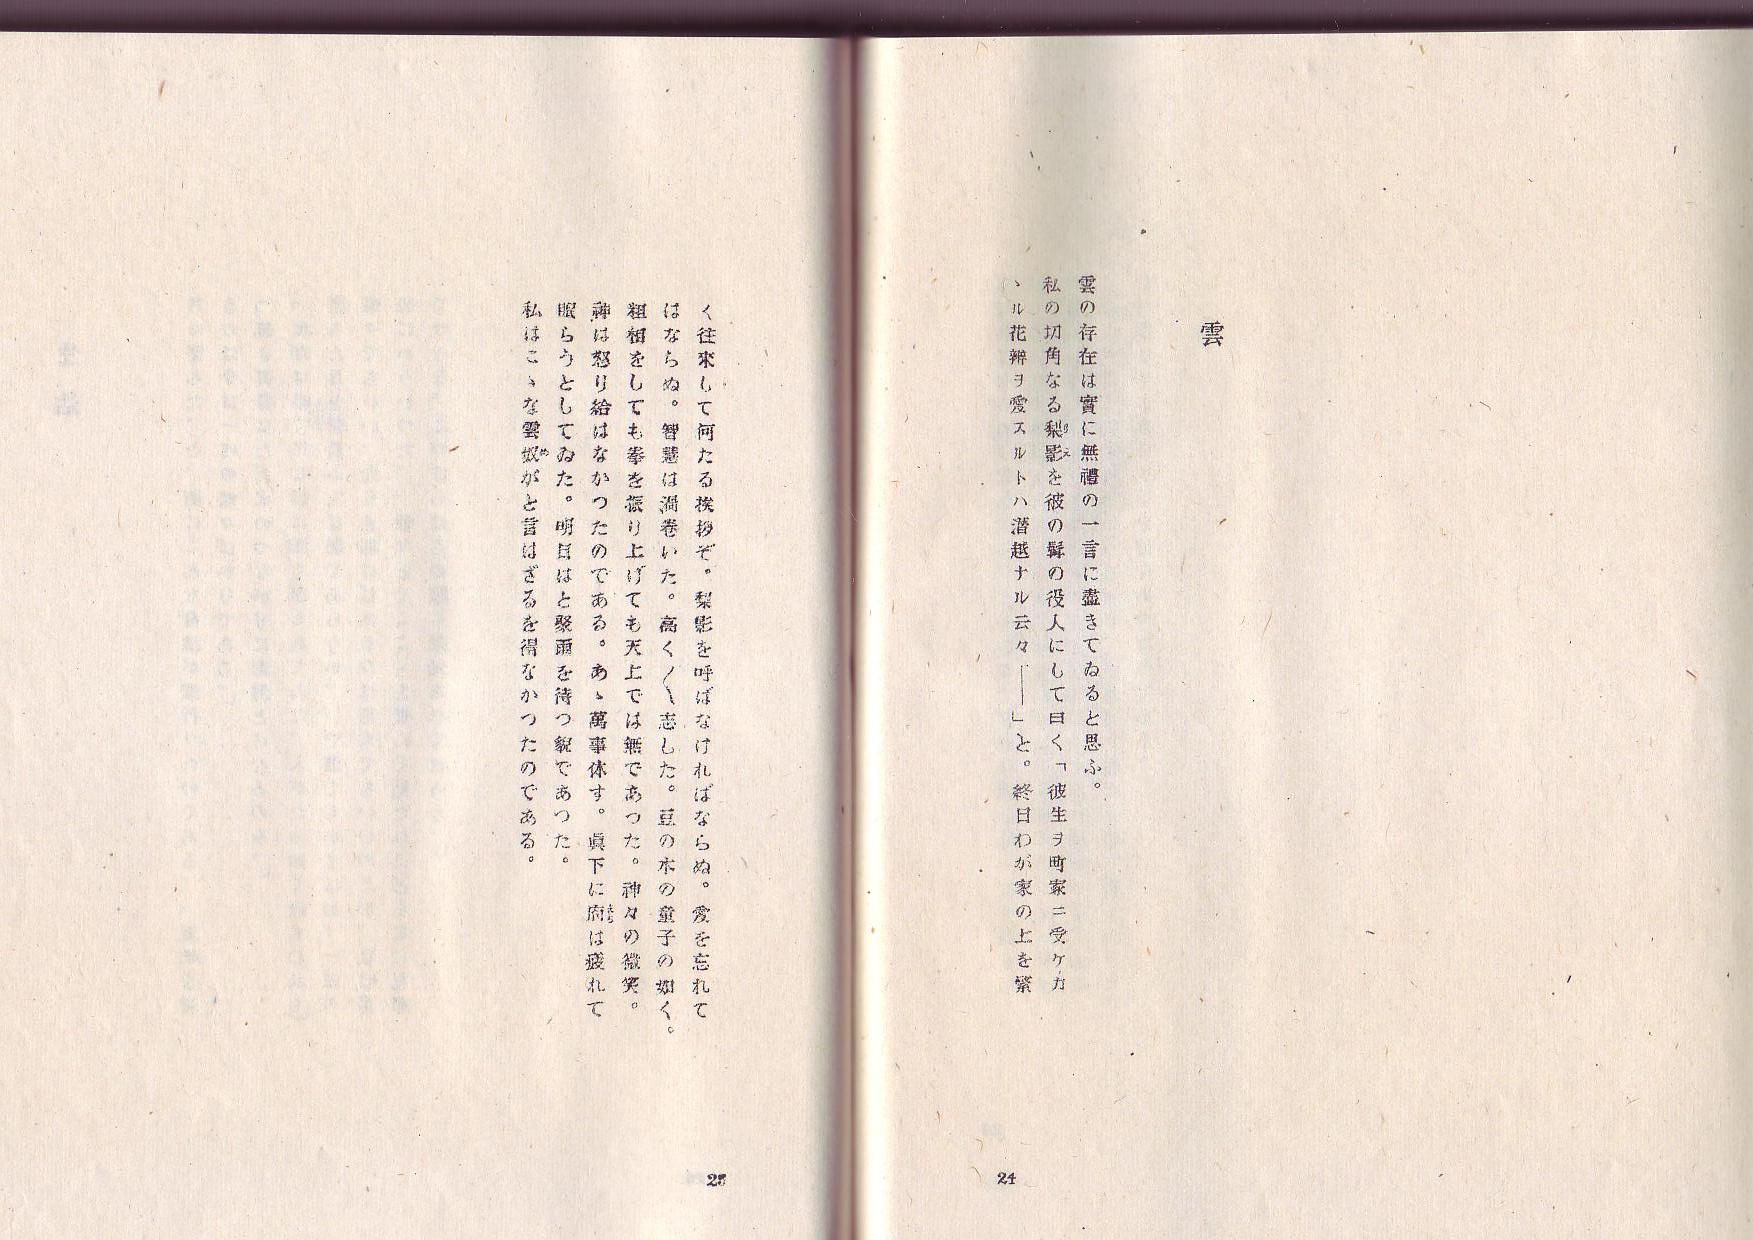 雲
雲の存在は實に無禮の一言に盡きてゐると思ふ。
私の切角なる梨影を彼の髯の役人にして曰く「彼生ヲ町家ニ受ケカ
ヽル花辨ヲ愛スルトハ潜越ナル云々――」と。終日わが家の上を繁
24
く往來して何たる挨拶ぞ。梨影を呼ばなければならぬ。愛を忘れて
はならぬ。智慧は渦卷いた。高く〳〵志した。豆の木の童子の如く。
粗相をしても拳を振り上げても天上では無であつた。神々の微笑。
神は怒り給はなかつたのである。あゝ萬事休す。眞下に府は疲れて
眠らうとしてゐた。明日はと聚雨を待つ貌であつた。
私はこゝな雲奴がと言はざるを得なかつたのである。
25